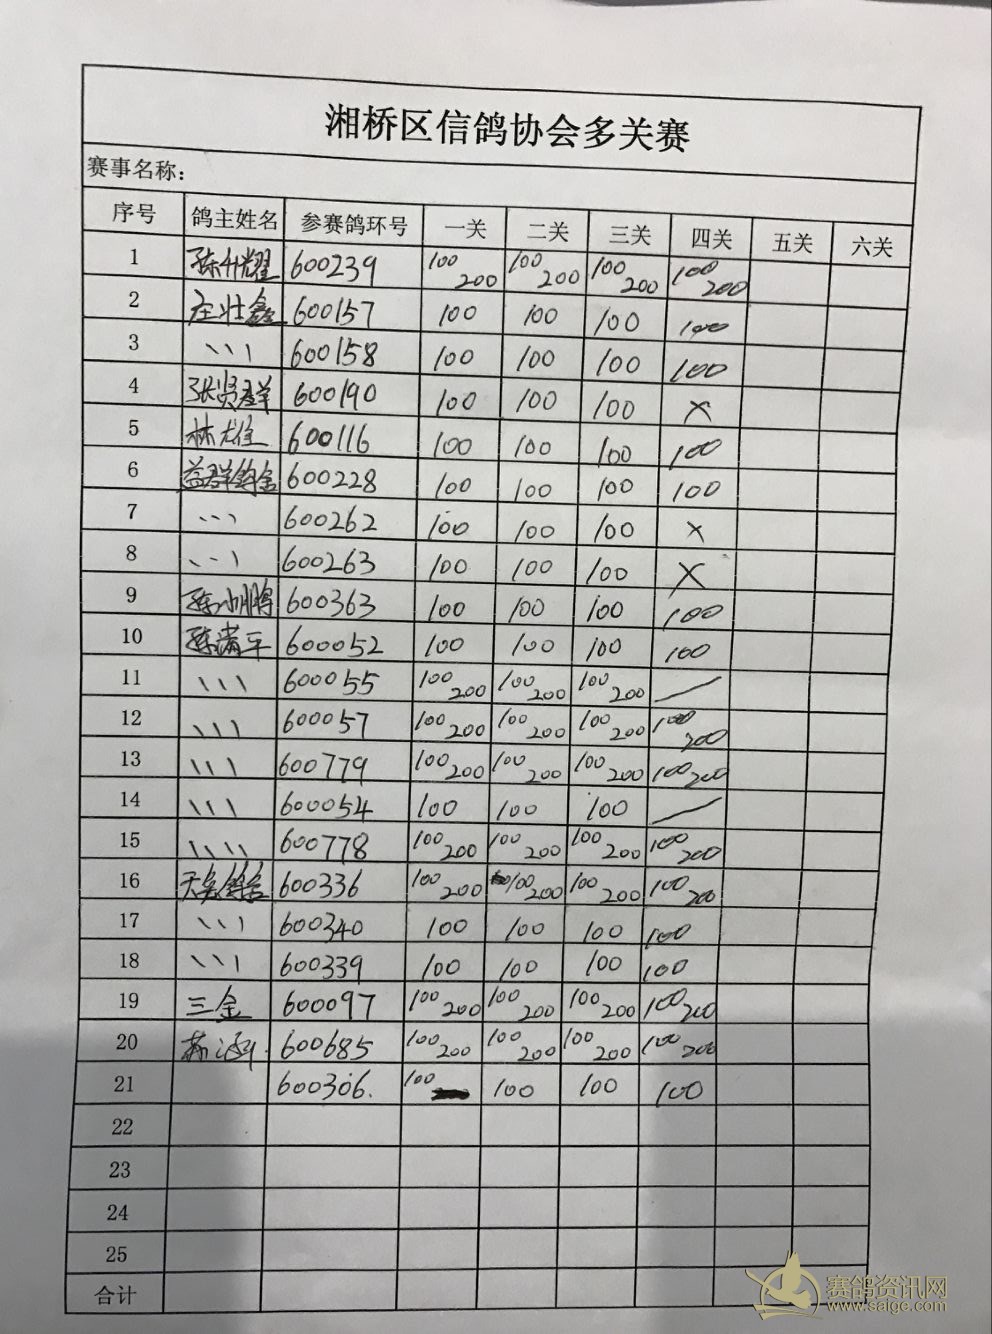 湘桥区信鸽协会多关赛
赛事名称：
序号 鸽主姓名 参赛鸽环号 一关 二关 三关 四关 五关 六关
1 600239 100 200 100 200 100 200 100 200
2 庄壮鑫 600157 100 100 100 100
3 \\\ 600158 100 100 100 100
4 张贤群 600190 100 100 100 ×
5 林雄 600116 100 100 100 100
6 益群鸽舍 600228 100 100 100 100
7 \\\ 600262 100 100 100 ×
8 \\\ 600263 100 100 100 ×
9 600363 100 100 100 100
10 600052 100 100 100 100
11 \\\ 600055 100 200 100 200 100 200 /
12 \\\ 600057 100 200 100 200 100 200 100 200
13 \\\ 600779 100 200 100 200 100 200 100 200
14 \\\ 600054 100 100 100 /
15 \\\\ 600778 100 200 100 200 100 200 100 200
16 600336 100 200 100 200 100 200 100 200
17 \\\ 600340 100 100 100 100
18 \\\ 600339 100 100 100 100
19 三金 600097 100 200 100 200 100 200 100 200
20 600685 100 200 100 200 100 200 100 200
21 600306. 100 100 100 100
22
23
24
25
合计
赛鸽资讯网
www.saige.com